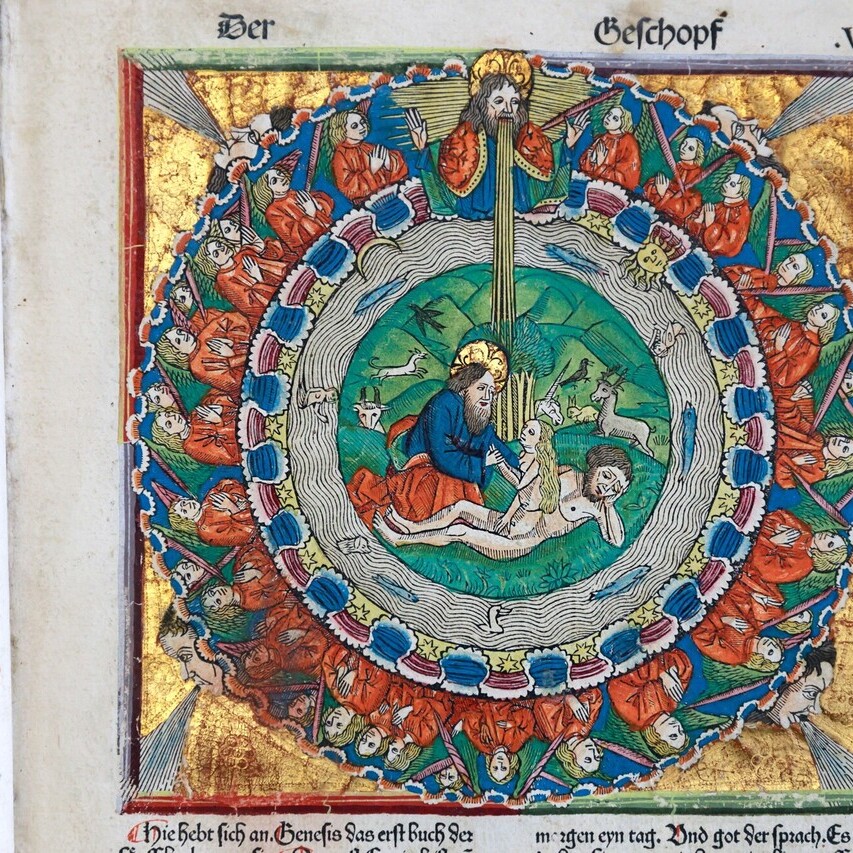 Der Geschopf
Hie hebt sich an. Genesis das erst buch der
morgen eyn tag. Und got der sprach. Es